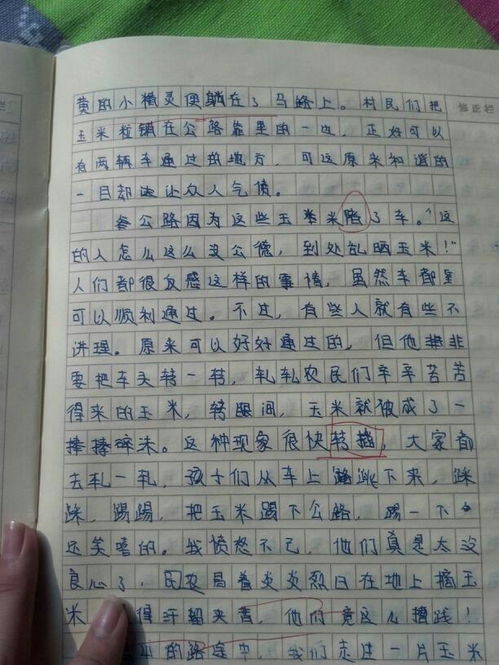 黄的小精灵便躺在了马路上。村民们把
玉米粒铺在公路靠里的一边，正好可以
有两辆车通过的地方，可这原来和谐的
一目却让众人气愤。
公路因为这些玉米陷了车。“这
的人怎么这么没公德，到处乱晒玉米！”
人们都很反感这样的事情，虽然车都是
可以顺利通过。不过，有些人就有些不
讲理。原来可以好好通过的，但他非
要把车头转一转，轧轧农民们辛辛苦苦
得来的玉米，转眼间，玉米就被成了一
搽搽碎沫。这种现象很快转播，大家都
去轧一轧，孩子们从车上跳下来，踩
踩，踢踢，把玉米踢下公路，踢一下
还笑嘻的。我愤怒不已，他们真是太没
良心了，民农冒着炎炎烈日在地上摘玉
米 得汗留夹背，他们竟这么撸践！
的路途中，我们走过一片玉米
修正栏